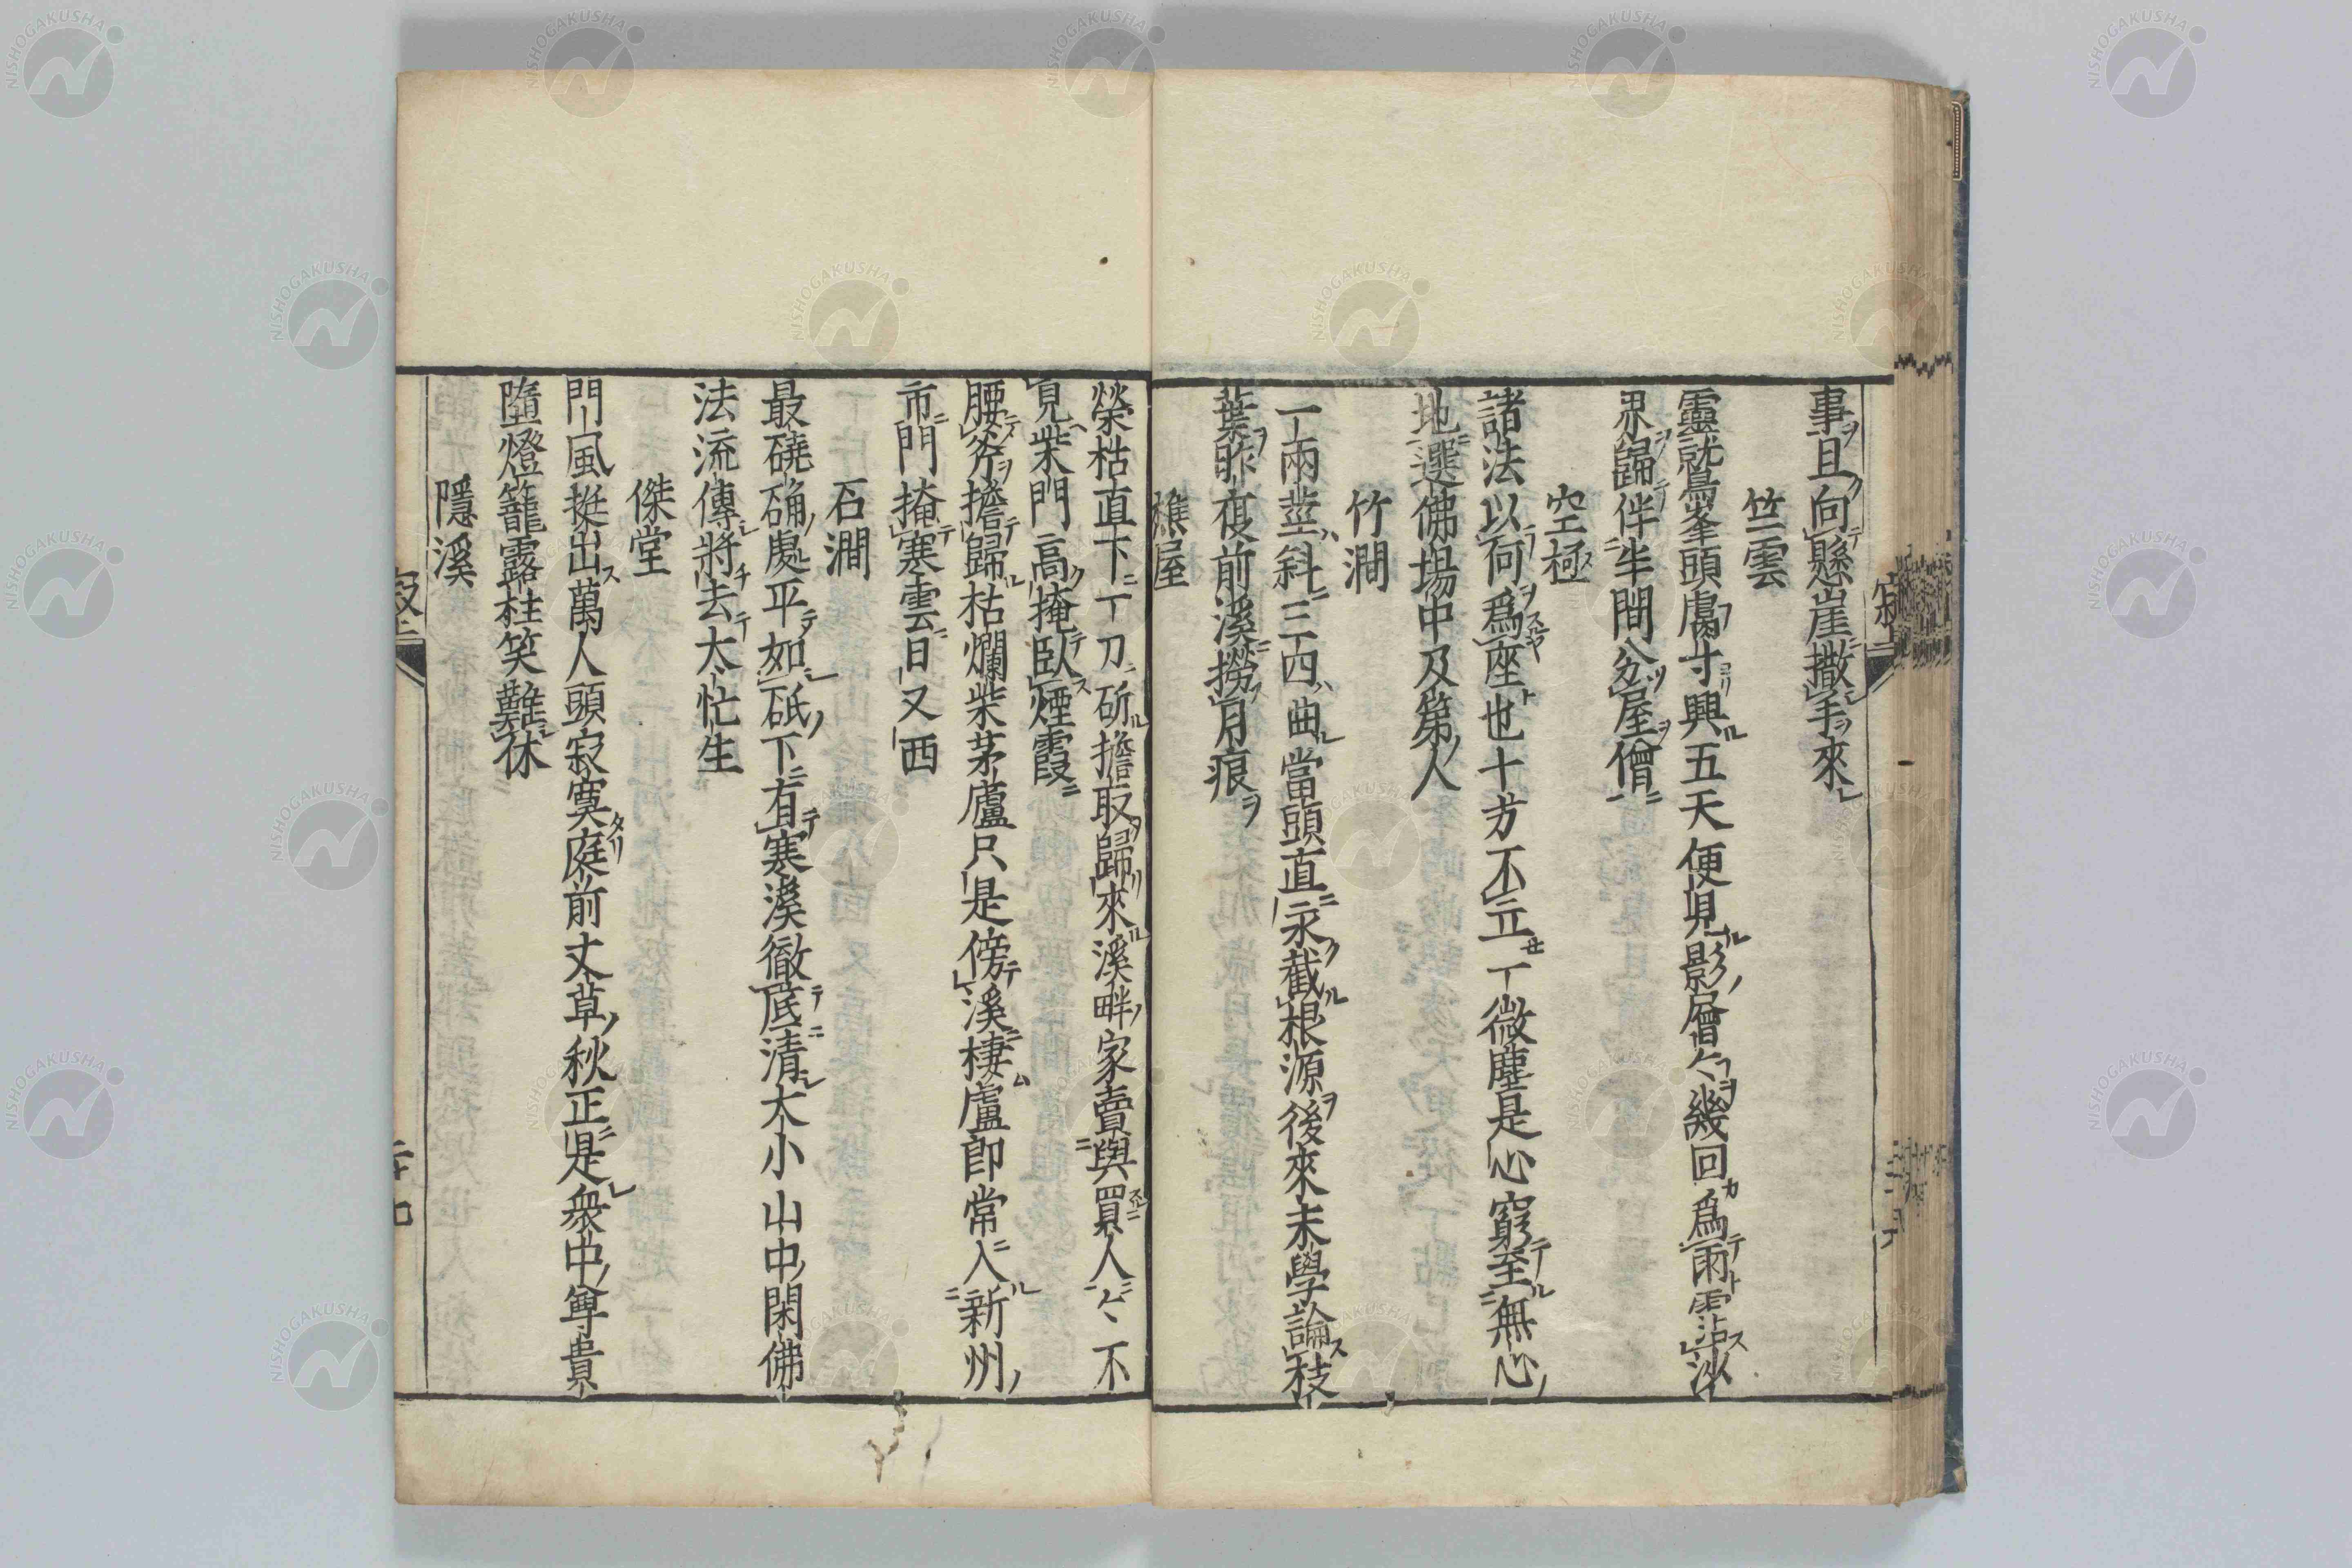 事且向懸崖撒手來
竺雲
靈就鳥峯頭膚寸興五天便見影層〻幾回爲雨霑沙
界歸伴半間分屋僧
空極
諸法以何爲座也十方不立一微塵是心窮至無心
地選佛場中及第人
竹澗
一兩莖斜三四曲當頭直永截根源後來未學論枝
葉昨夜前溪撈月痕
樵屋
榮枯直下一刀斫擔取歸來溪畔家賣與買人〻不
見柴門高掩臥煙霞
腰斧擔歸枯爛柴茅廬只是傍溪棲盧即常入新州
市門掩寒雲日又西
石澗
最磽确處平如砥下有寒溪徹底清大小山中閑佛
法流傳將去太忙生
傑堂
門風挺出萬人頭寂寞庭前丈草秋正是衆中尊貴
墮燈籠露柱笑難休
隱溪